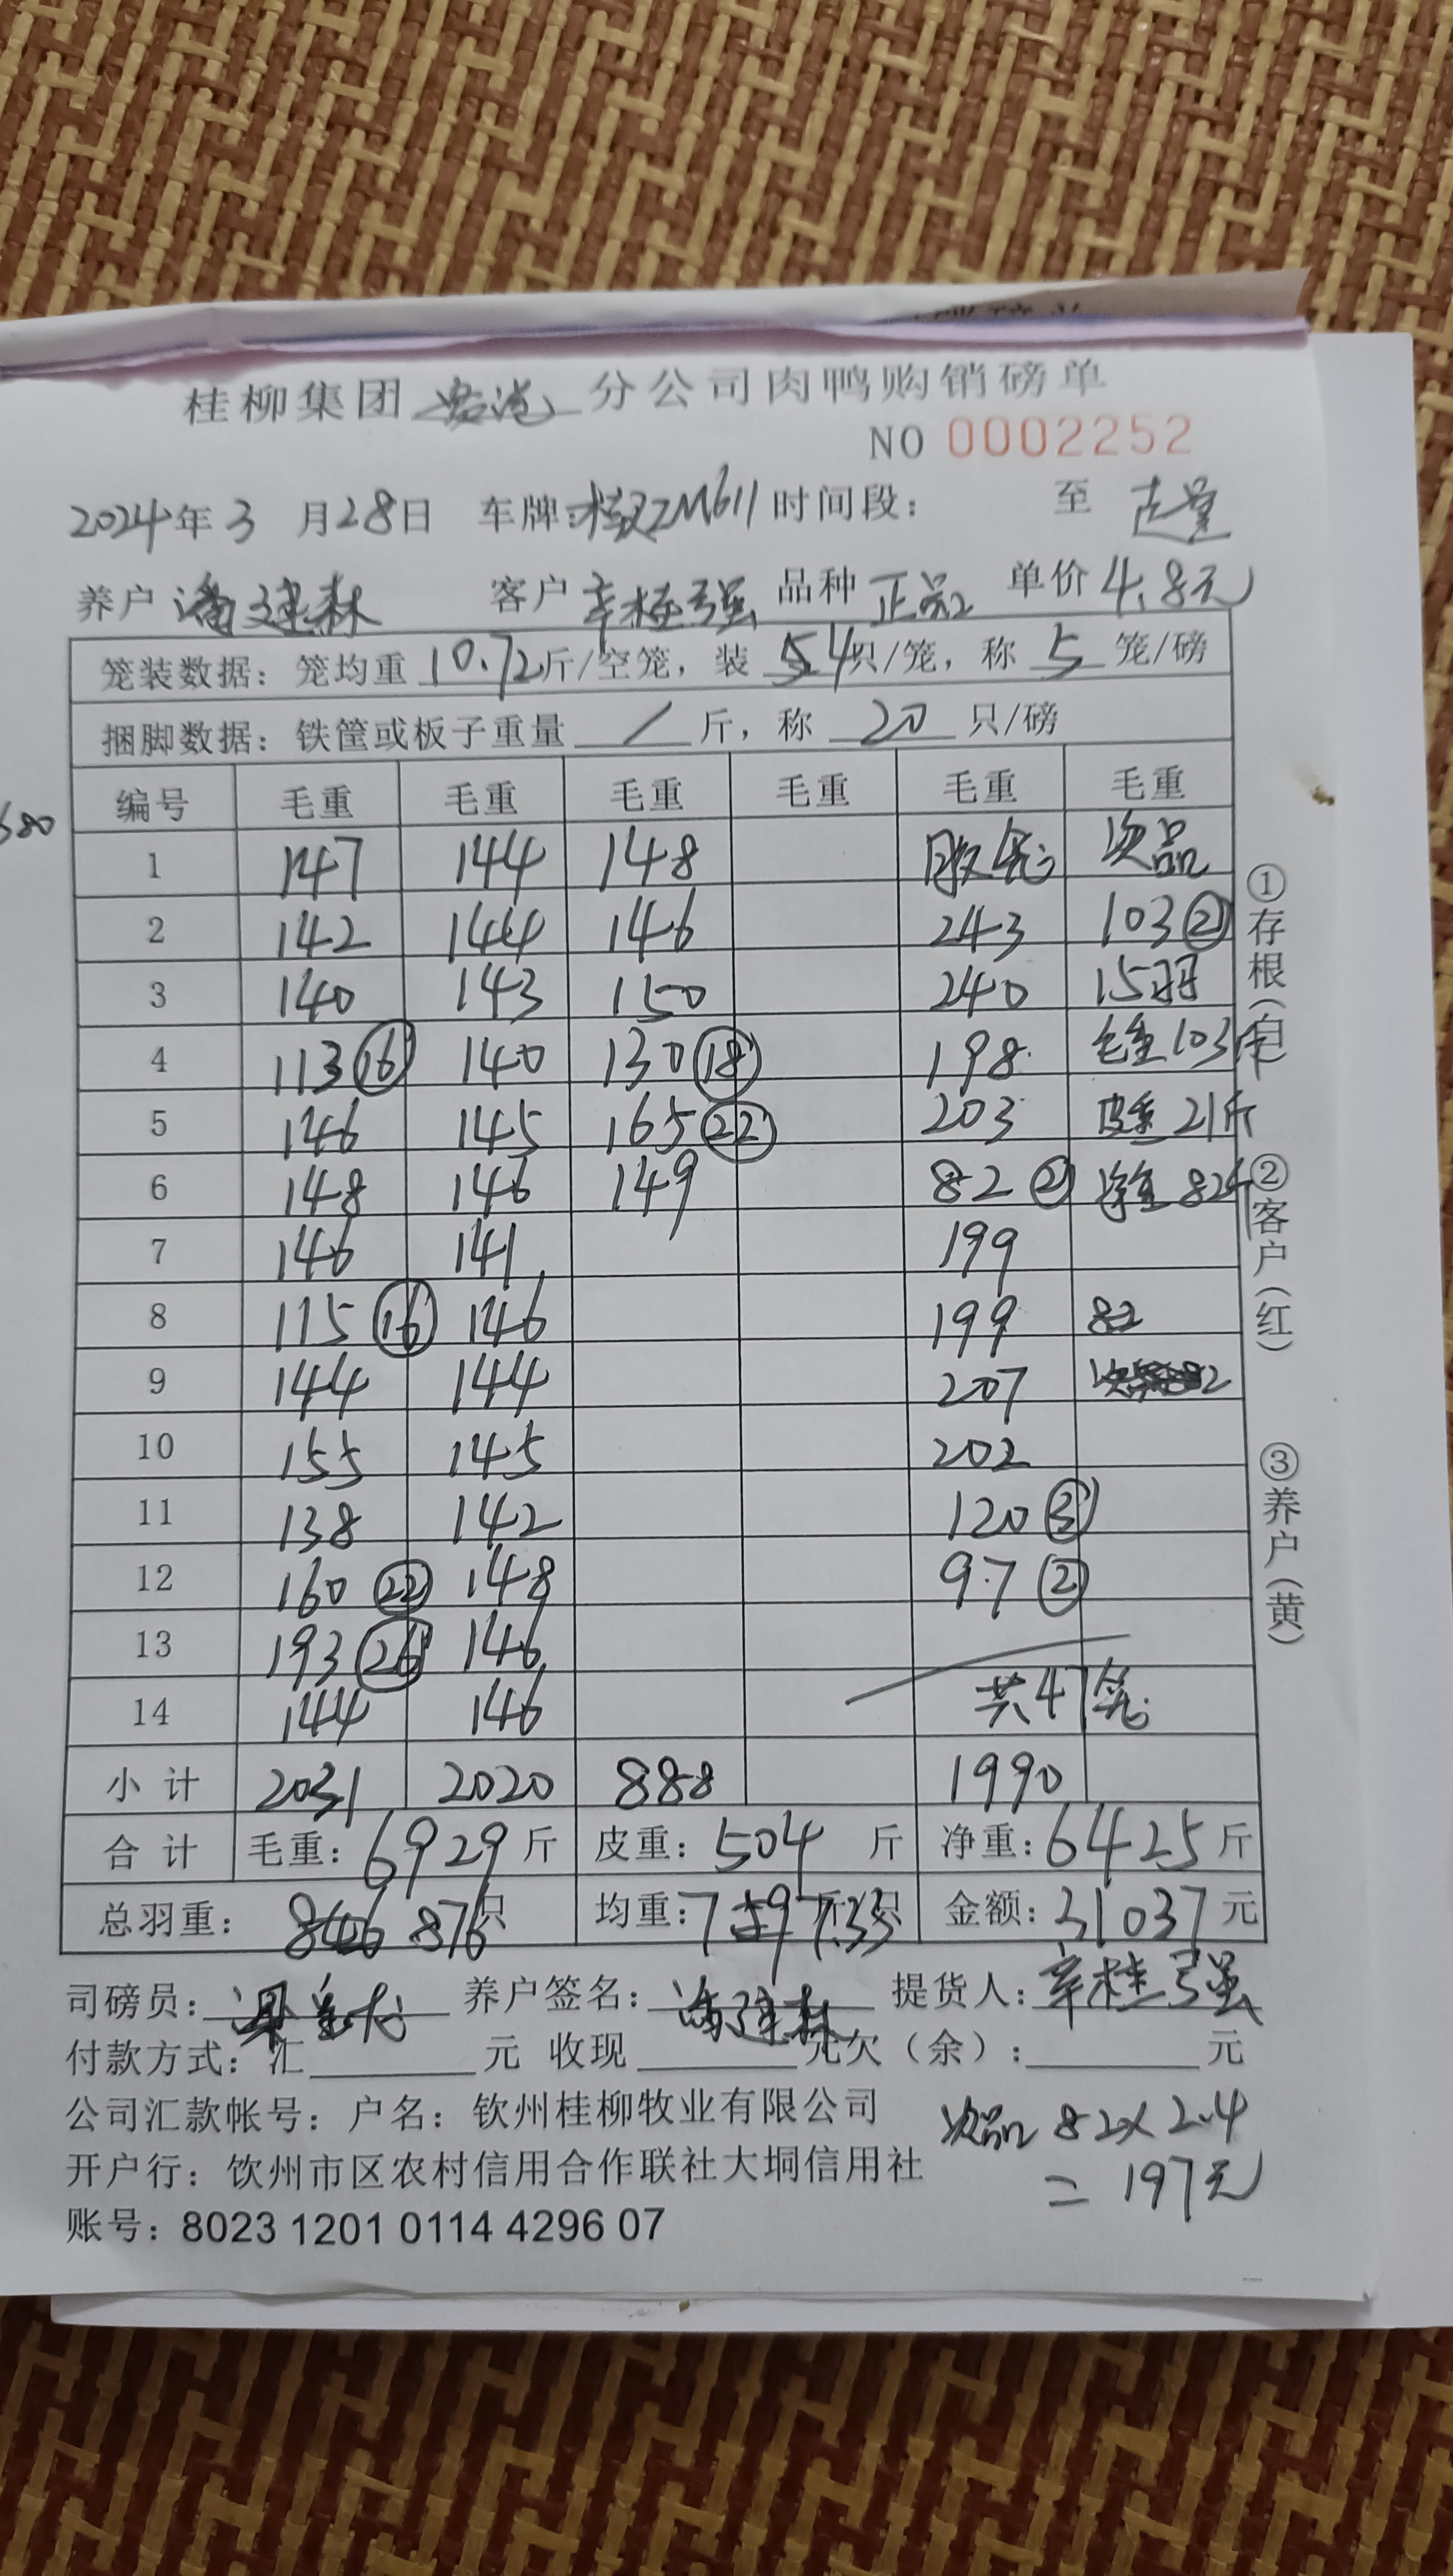 桂柳集团 分公司肉鸭购销磅单
NO 0002252
2024年3月28日 车牌: 时间段: 至
养户 潘建森 客户 辛桂强 品种 正品 单价 4.8元
笼装数据: 笼均重 10.72斤/空笼, 装 54只/笼, 称 5 笼/磅
捆脚数据: 铁筐或板子重量 / 斤, 称 20 只/磅
编号 毛重 毛重 毛重 毛重 毛重 毛重
1 147 144 148 次品
2 142 144 146 243 103②
3 140 143 150 240 15羽
4 113⑯ 140 130⑱ 198 毛重103斤
5 146 145 165㉒ 203 皮重21斤
6 148 146 149 82② 净重82斤
7 146 141 199
8 115⑯ 146 199 82
9 144 144 207
10 155 145 202
11 138 142 120③
12 160㉒ 148 97②
13 193㉖ 146
14 144 146 共47笼
小计 2031 2020 888 1990
合计 毛重: 6929斤 皮重: 504 斤 净重: 6425斤
总羽重: 876只 均重: 7.33 只 金额: 31037元
司磅员: 养户签名: 潘建森 提货人: 辛桂强
付款方式: 汇 元 收现 元欠(余): 元
公司汇款帐号: 户名: 钦州桂柳牧业有限公司
次品 82×2.4
=197元
开户行: 饮州市区农村信用合作联社大垌信用社
账号: 8023 1201 0114 4296 07
①存根(白)
②客户(红)
③养户(黄)